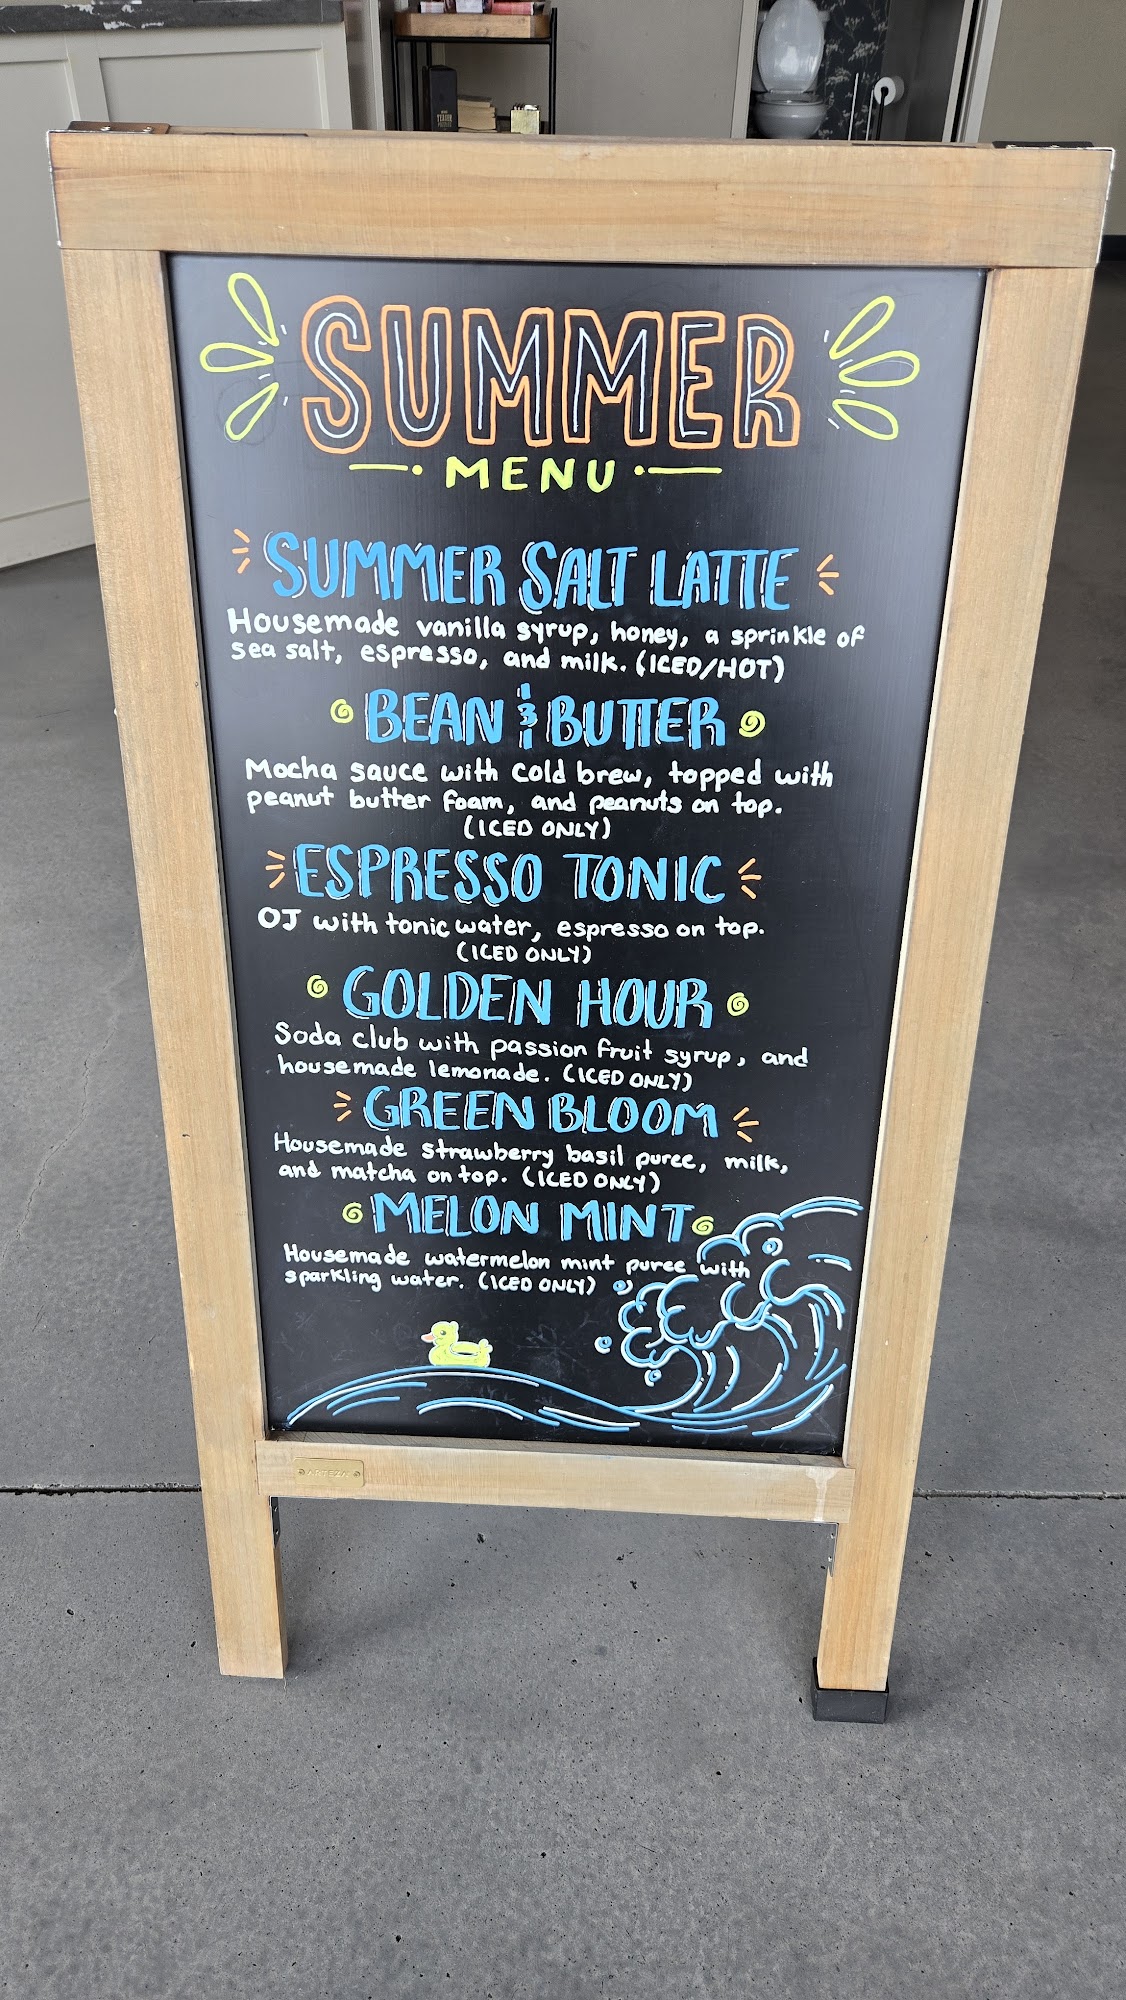 SUMMER
MENU
SUMMER SALT LATTE
Housemade vanilla syrup, honey, a sprinkle of
sea salt, espresso, and milk. (ICED/HOT)
BEAN & BUTTER
Mocha sauce with cold brew, topped with
peanut butter foam, and peanuts on top.
(ICED ONLY)
ESPRESSO TONIC
OJ with tonic water, espresso on top.
(ICED ONLY)
GOLDEN HOUR
Soda club with passion fruit syrup, and
housemade lemonade. (ICED ONLY)
GREEN BLOOM
Housemade strawberry basil puree, milk,
and matcha on top. (ICED ONLY)
MELON MINT
Housemade watermelon mint puree with
sparkling water. (ICED ONLY)
ARTEZA